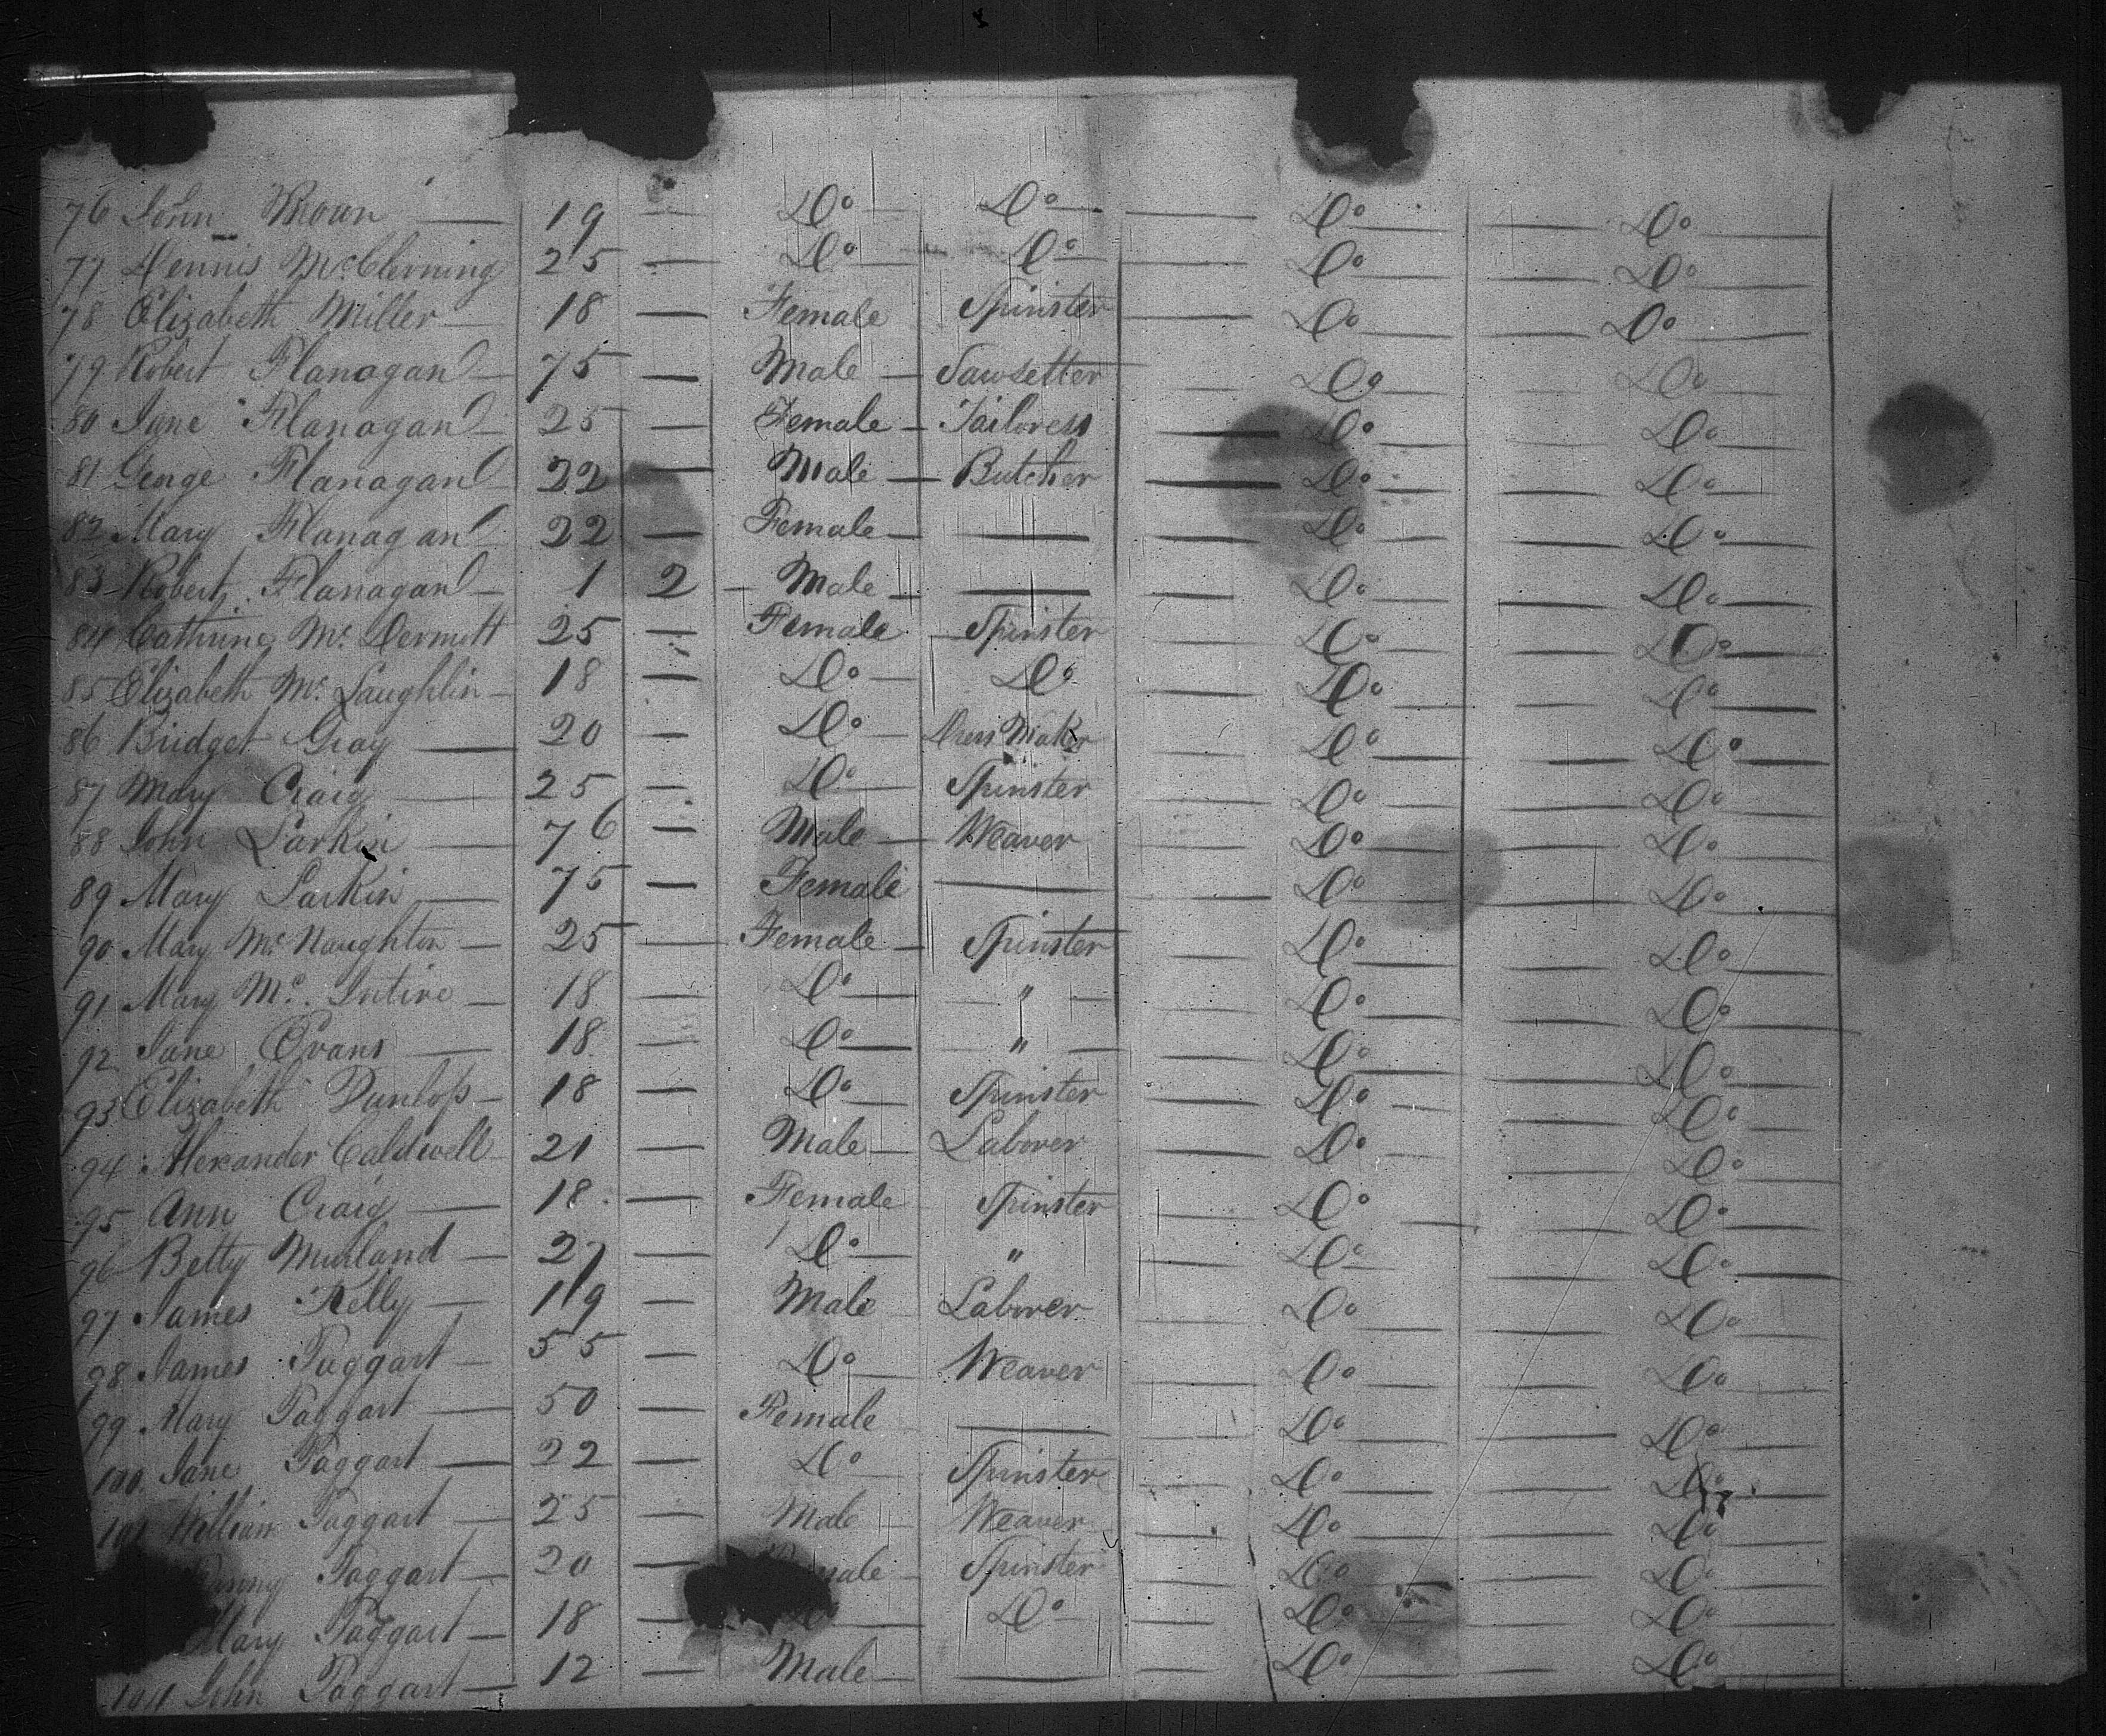 76 John Moun — 19 — Do — Do — Do — Do
77 Dennis McClerning 25 — Do — Do — Do — Do
78 Elizabeth Miller — 18 — Female Spinster — Do — Do
79 Robert Flanagan — 75 — Male — Sawsetter — Do — Do
80 Jane Flanagan — 25 — Female — Tailoress — Do — Do
81 George Flanagan — 22 — Male — Butcher — Do — Do
82 Mary Flanagan — 22 — Female — — Do — Do
83 Robert Flanagan — 1 2 — Male — — Do — Do
84 Cathrine Mc. Dermott 25 — Female Spinster — Do — Do
85 Elizabeth Mc. Laughlin — 18 — Do — Do — Do — Do
86 Bridget Gray — 20 — Do — Dress Maker — Do — Do
87 Mary Craig — 25 — Do Spinster — Do — Do
88 John Larkin — 76 — Male — Weaver — Do — Do
89 Mary Larkin — 75 — Female — — Do — Do
90 Mary Mc Naughton — 25 — Female — Spinster — Do — Do
91 Mary Mc. Intire — 18 — Do — " — Do — Do
92 Jane Evans — 18 — Do — " — Do — Do
93 Elizabeth Dunlop — 18 — Do — Spinster — Do — Do
94 Alexander Caldwell — 21 — Male — Laborer — Do — Do
95 Ann Craig — 18 — Female Spinster — Do — Do
96 Betty Murland — 27 — Do — " — Do — Do
97 James Kelly — 19 — Male Laborer — Do — Do
98 James Taggart — 55 — Do — Weaver — Do — Do
99 Mary Taggart — 50 — Female — — Do — Do
100 Jane Taggart — 22 — Do — Spinster — Do — Do
101 William Taggart — 25 — Male — Weaver — Do — Do
Taggart — 20 — male — Spinster — Do — Do
Mary Taggart — 18 — Do — Do — Do — Do
104 John Taggart — 12 — Male — — Do — Do